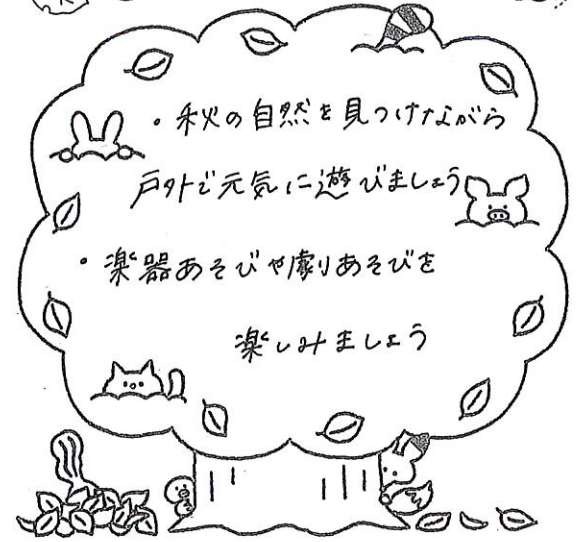 ・秋の自然を見つけながら
戸外で元気に遊びましょう
・楽器あそびや劇りあそびを
楽しみましょう